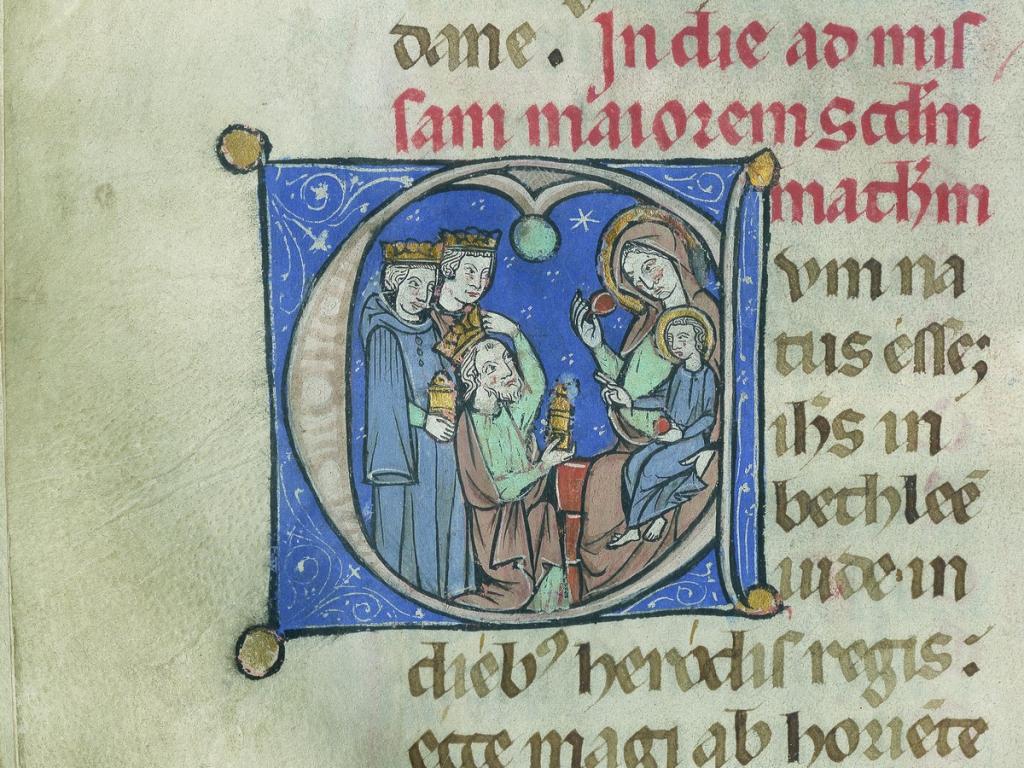 dane. In die ad mis
sam maiorem Scdm̄
math̄m
C
vm na
tus ésse;
ih̄s in
bethleē
iude·in
diebꝰ heródis regis:
ecce magi ab horiēte